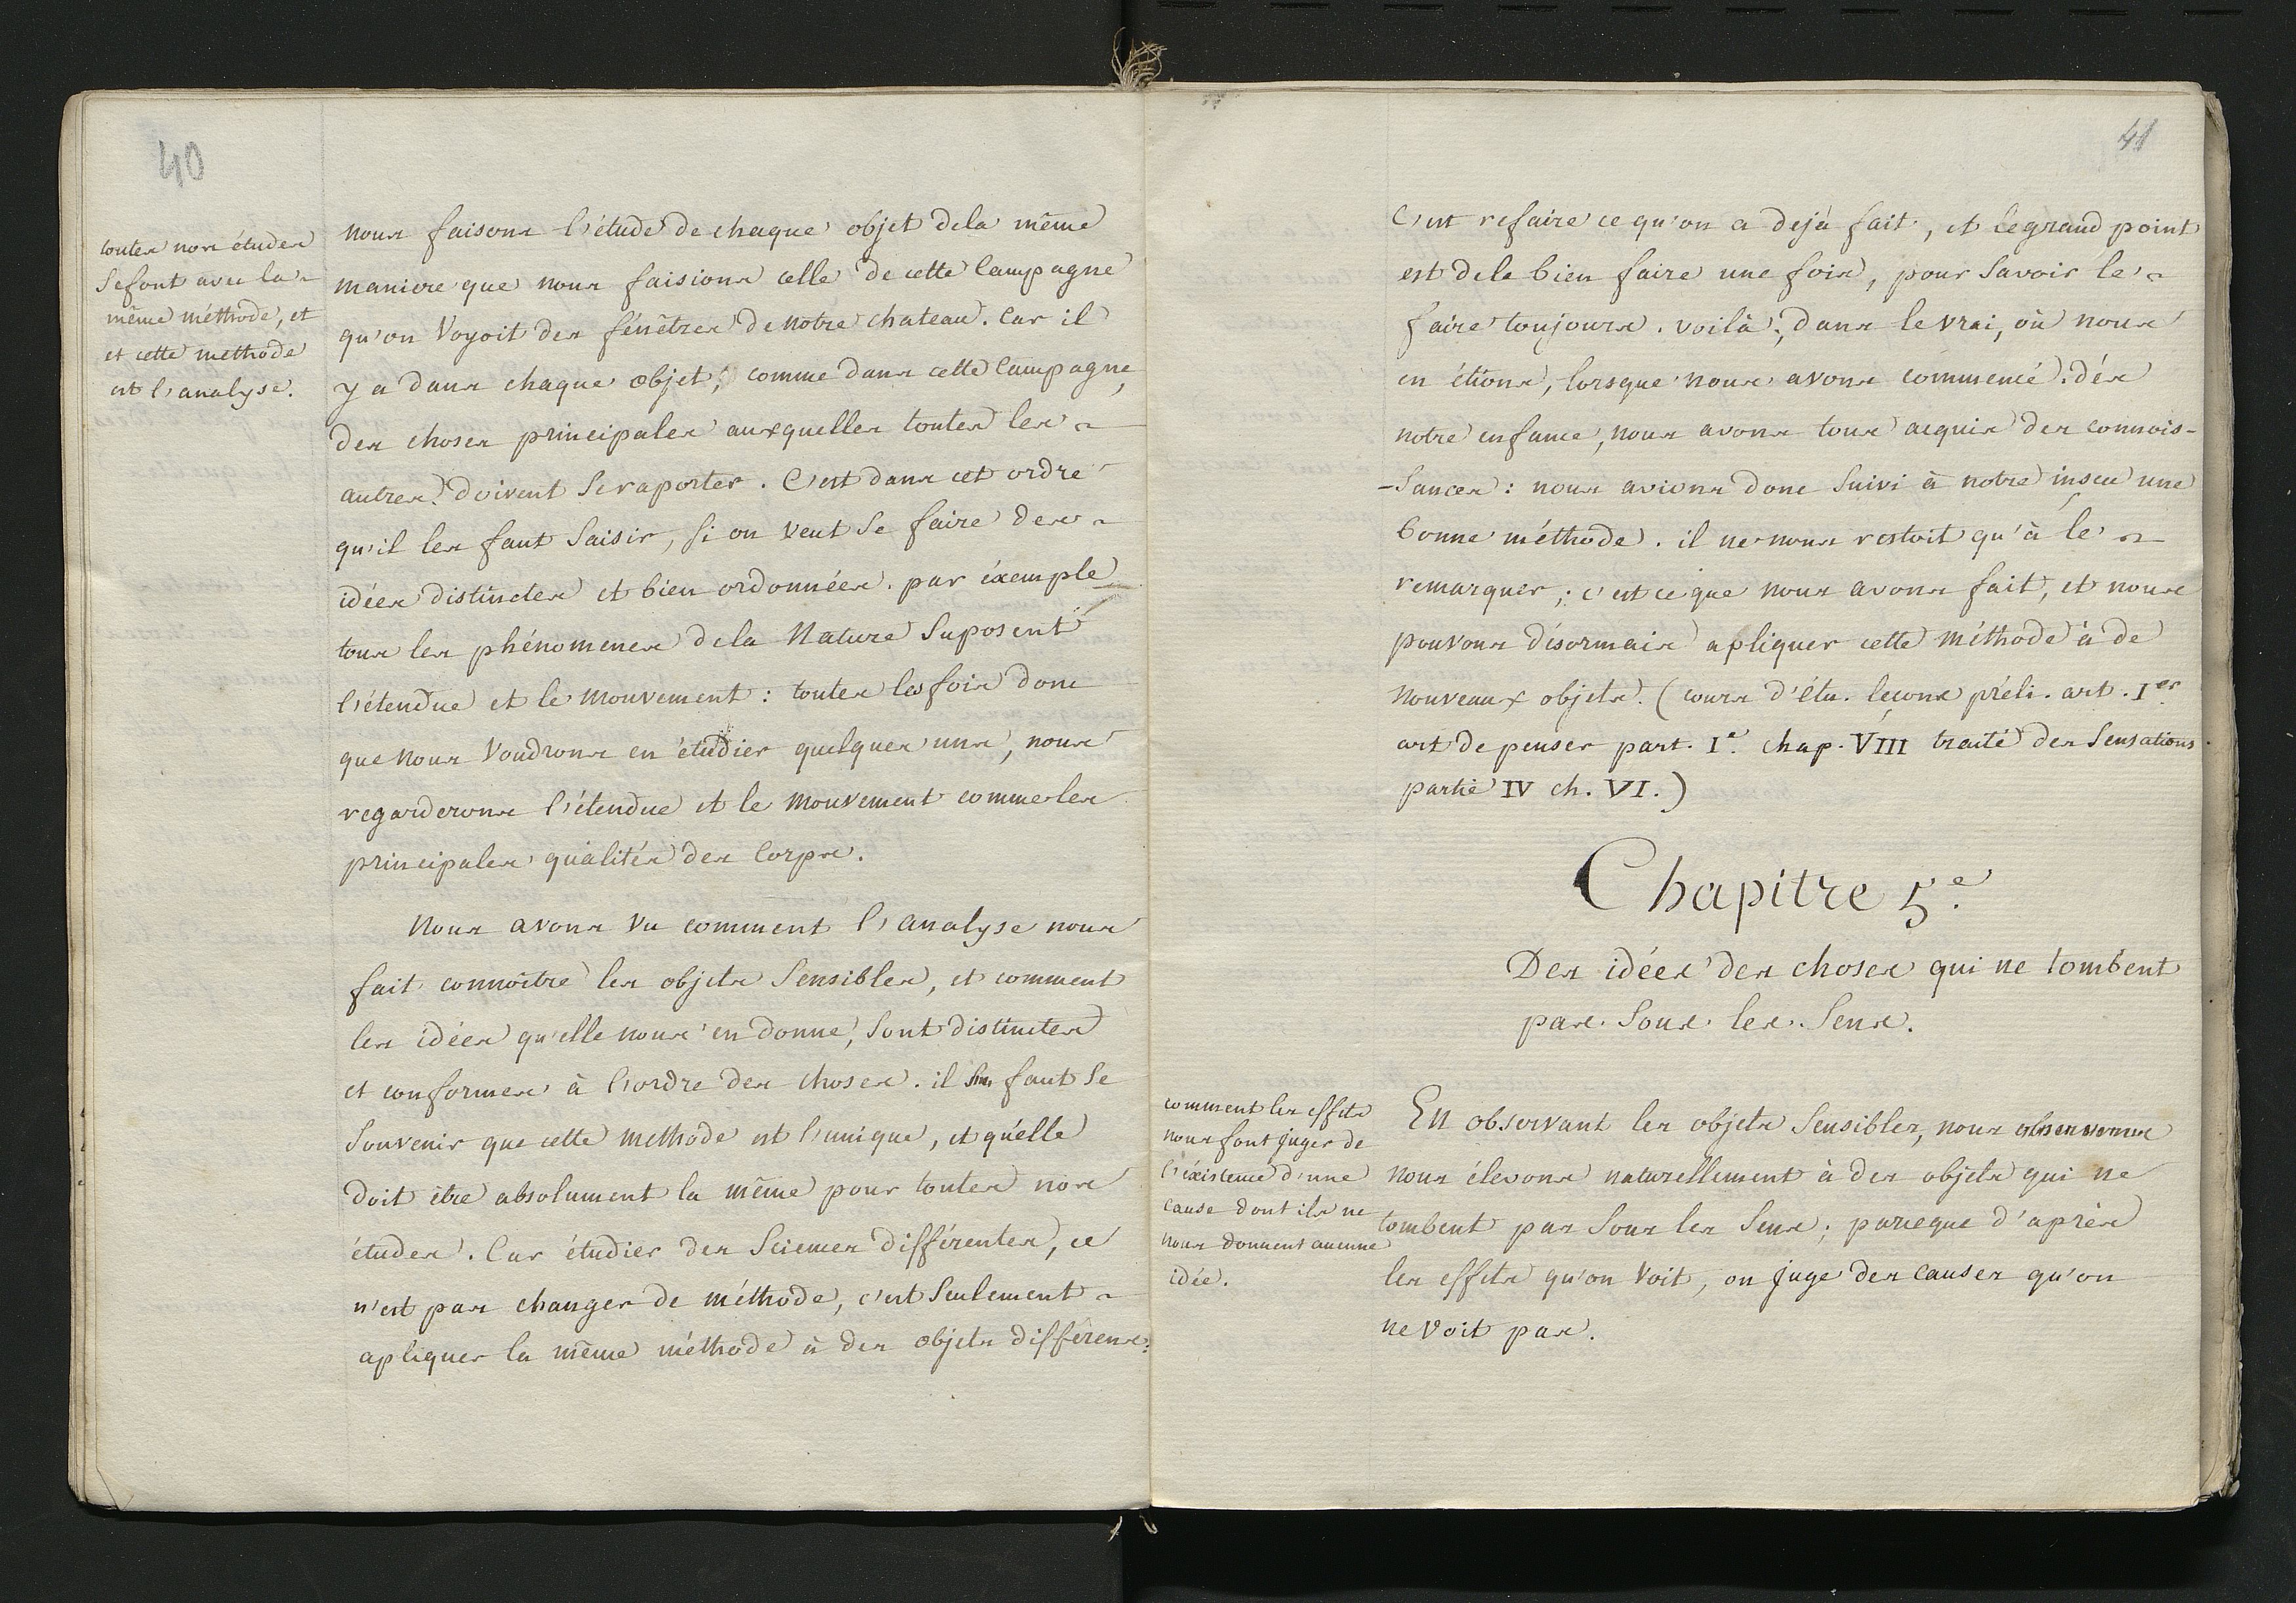 40
toutes nos études
se font avec la
même méthode, et
et cette methode
est l'analyse.
nous faisons l'étude de chaque objet dela même
maniere que nous faisions celle de cette campagne
qu'on voyoit des fénêtres de notre chateau. Car il
y a dans chaque objet, comme dans cette campagne,
des choses principales auxquelles toutes les
autres doivent se raporter. C'est dans cet ordre
qu'il les faut saisir, si on veut se faire des
idées distinctes et bien ordonnées. par éxemple
tous les phénomenes dela Nature suposent
l'étendue et le mouvement : toutes les fois donc
que nous voudrons en étudier quelques uns, nous
regarderons l'étendue et le mouvement comme les
principales qualités des corps.
Nous avons vu comment l'analyse nous
fait connoître les objets sensibles, et comment
les idées qu'elle nous en donne, sont distinctes
et conformes à l'ordre des choses. il faut se
souvenir que cette methode est l'unique, et qu'elle
doit être absolument la même pour toutes nos
études. Car étudier des sciences différentes, ce
n'est pas changer de méthode, c'est seulement
apliquer la même méthode à des objets différens:
41
C'est refaire ce qu'on a dejà fait, et le grand point
est dele bien faire une fois, pour savoir le
faire toujours. voilà, dans le vrai, où nous
en étions, lorsque nous avons commencé. dés
notre enfance, nous avons tous acquis des connois-
-sances : nous avions donc suivi à notre insçu une
bonne méthode. il ne nous restoit qu'à le
remarquer ; c'est ce que nous avons fait, et nous
pouvons désormais apliquer cette méthode à de
nouveaux objets. (cours d'étu. leçons préli. art. Ier
art de penser part. Ie. chap. VIII traité des sensations.
partie IV ch. VI.)
Chapitre 5.e
Des idées des choses qui ne tombent
pas sous les sens.
comment les effets
nous font juger de
l'éxistence d'une
cause dont ils ne
nous donnent aucune
idée.
En observant les objets sensibles, nous
nous élevons naturellement à des objets qui ne
tombent pas sous les sens ; parceque d'après
les effets qu'on voit, on juge des causes qu'on
ne voit pas.